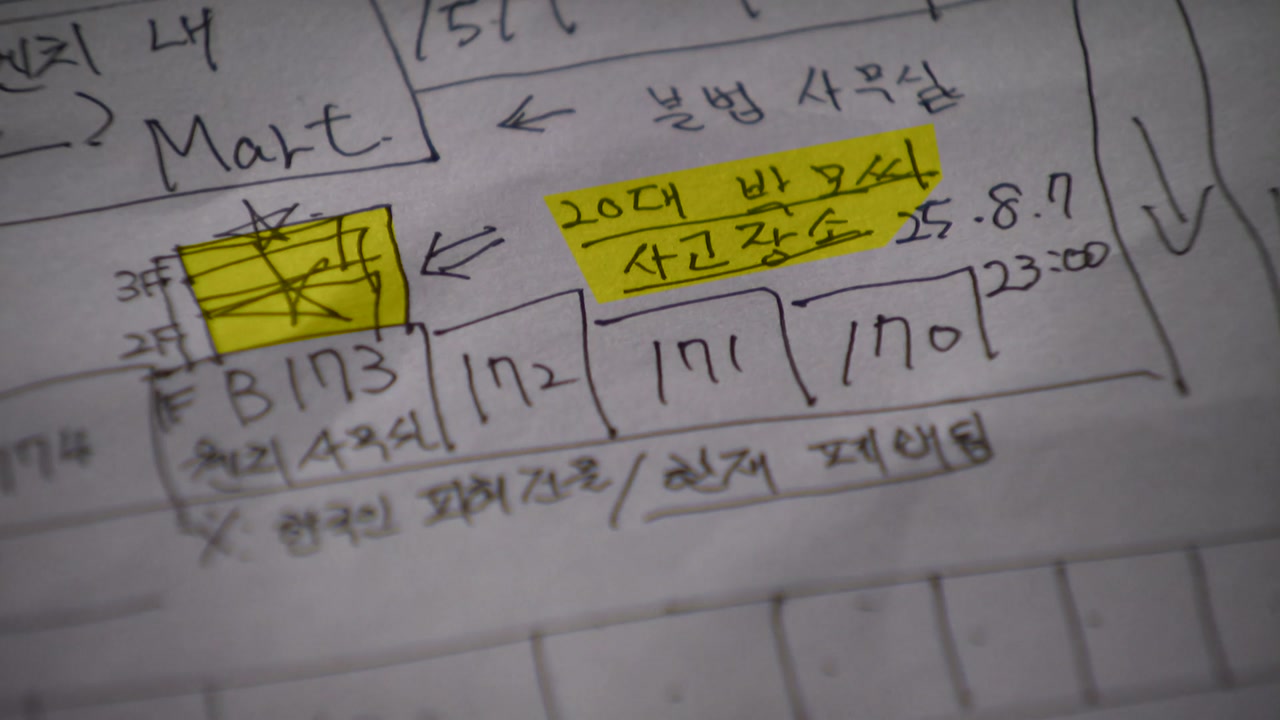 내
Mart.
← 불법 사무실
20대 박모씨
사고장소 25.8.7
23:00
3F
2F
1F B173 172 171 170
174
현지 사무실
※ 한국인 피해 건물 / 현재 페인팅